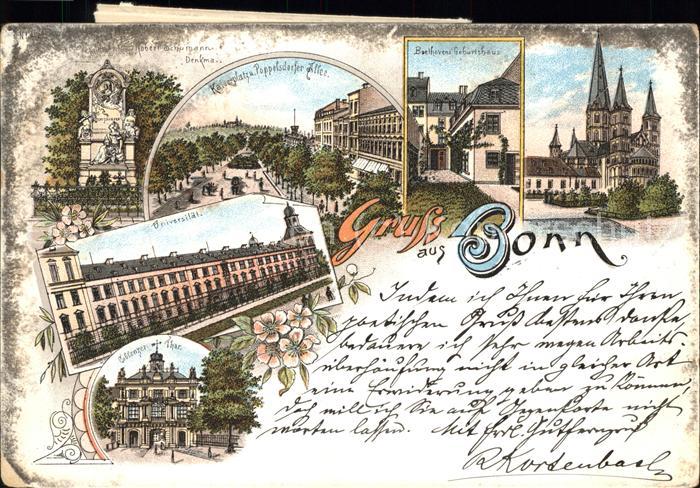 Robert Schumann
Denkmal.
Kaiserplatz u. Poppelsdorfer Allee.
Beethovens Geburtshaus
Universität.
Coblenzer Thor.
Gruss
aus
Bonn
Indem ich Ihnen für Ihren
poetischen Gruß bestens danke
bedauere ich sehr wegen Arbeits-
überhäufung nicht in gleicher Art
eine Erwiderung geben zu können,
doch will ich Sie auf Gegenkarte nicht
warten lassen. Mit frdl.
R Kortenbach